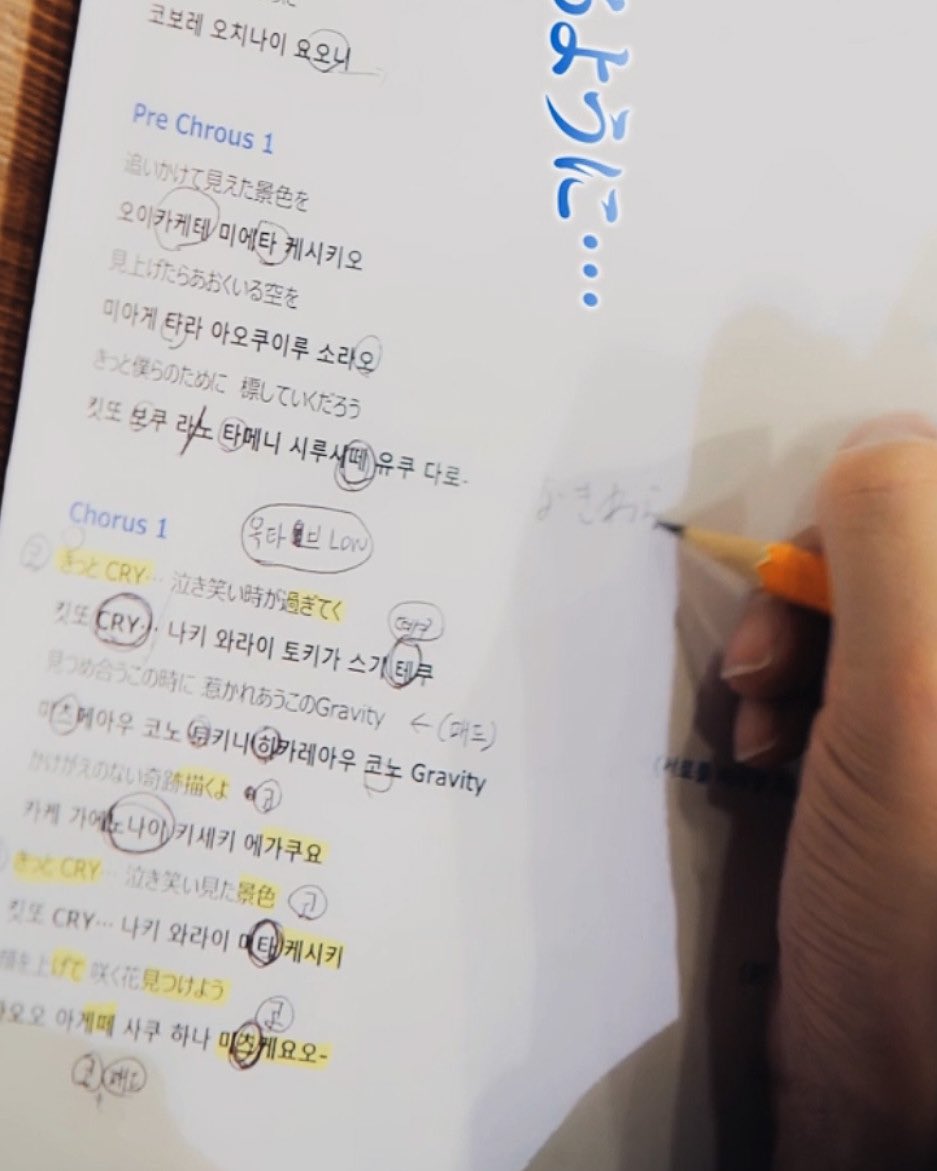 코보레 오치나이 요오니
ように…
Pre Chrous 1
追いかけて見えた景色を
오이카케테 미에타 케시키오
見上げたらあおくいる空を
미아게 탸라 아오쿠이루 소라오
きっと僕らのために 標していくだろう
킷또 보쿠 라노 타메니 시루시떼 유쿠 다로-
Chorus 1
옥타브 Low
② きっと CRY… 泣き笑い時が過ぎてく
킷또 CRY… 나키 와라이 토키가 스기테쿠
見つめ合うこの時に 惹かれあうこのGravity ← (패드)
미츠메아우 코노 토키니 히카레아우 코노 Gravity
かけがえのない奇跡描くよ 코
카케 가에노나이 키세키 에가쿠요
きっと CRY… 泣き笑い見た景色 코
킷또 CRY… 나키 와라이 미타 케시키
顔を上げて 咲く花見つけよう
카오오 아게떼 사쿠 하나 미츠케요오-
코 패드
なきわら